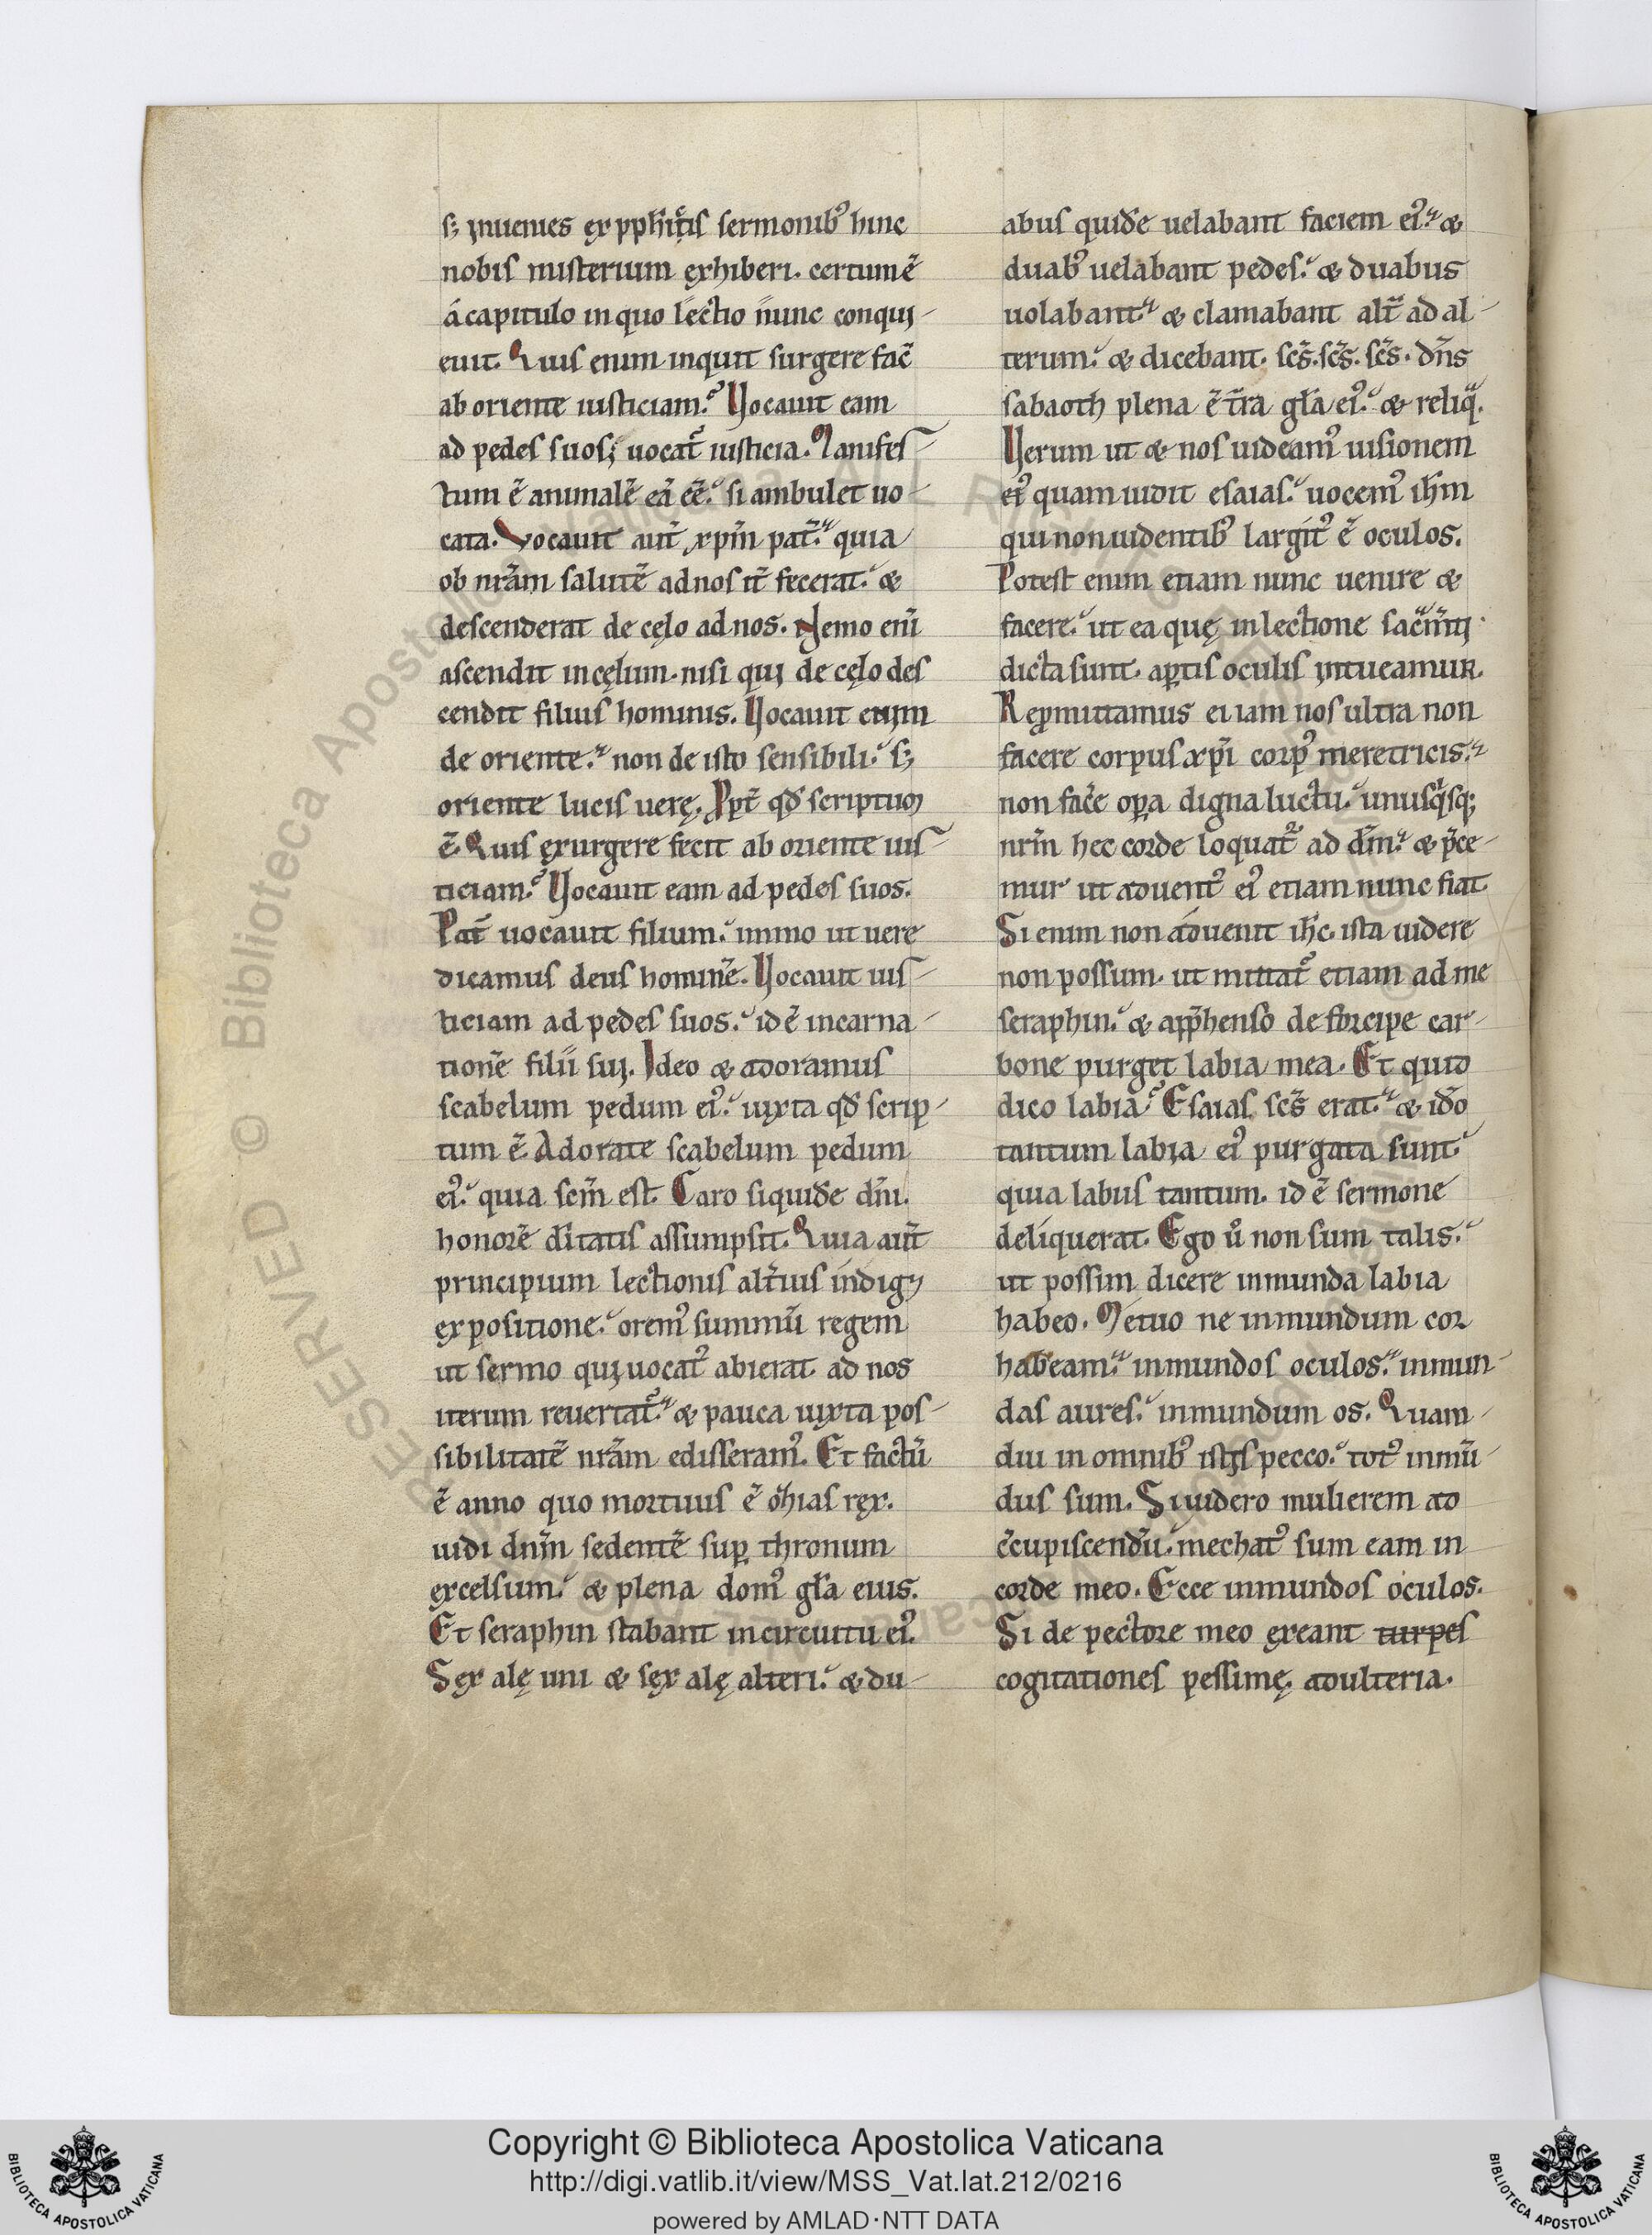 s; inuenies ex pph̄ı̄tis sermonib᾽ hinc
nobis misterium exhiberi. certum ē
á capitulo in quo lectio nunc conqui-
euit. Quis enim inquit surgere fac̄
ab oriente iusticiam? Uocauit eam
ad pedes suos; uocat᾽ iusticia. Manifes-
tum ē animalē eā eē. si ambulet uo-
cata. Vocauit aut̄ xpm̄ pat̄. quia
ob nr̄am salutē ad nos it̄ fecerat. &
descenderat de cęlo ad nos. Nemo eni̅
ascendit in cęlum. nisi qui de cęlo des
cendit filius hominis. Uocauit eum
de oriente. non de isto sensibili. s;
oriente lucis uerę. Ppt̄ qd̄ scriptum
ē. Quis exurgere fecit ab oriente ius-
ticiam? Uocauit eam ad pedes suos.
Pat̄ uocauit filium. immo ut uere
dicamus deus hominē. Uocauit ius-
ticiam ad pedes suos. id ē incarna-
tionē filii sui. Ideo & adoramus
scabelum pedum ei᾽. iuxta qd̄ scrip-
tum ē. Adorate scabelum pedum
ei᾽. quia scm̄ est. Caro siquidē dn̄i.
honorē dı̄tatis assumpsit. Quia aut̄
principium lectionis alt̄ius indig&
expositione. orem᾽ summū regem
ut sermo qui uocat᾽ abierat ad nos
iterum reuertat᾽. & pauca iuxta pos-
sibilitatē nr̄am edisseram᾽. Et factū
ē anno quo mortuus ē ozias rex.
uidi dnm̄ sedentē sup̱ thronum
excelsum. & plena dom᾽ gl̄a eius.
Et seraphin stabant in circuitu ei᾽.
Sex alę uni & sex alę alteri. & du-
abus quidē uelabant faciem ei᾽. &
duab᾽ uelabant pedes. & duabus
uolabant. & clamabant alt̄ ad al-
terum. & dicebant. scs̄. scs̄. scs̄. dn̄s
sabaoth plena ē t̄ra gl̄a ei᾽. & reliq̄.
Uerum ut & nos uideam᾽ uisionem
ei᾽ quam uidit esaias. uocem᾽ ih̄m
qui non uidentib᾽ largit᾽ ē oculos.
Potest enim etiam nunc uenire &
facere. ut ea quę in lectione
dicta sunt. ap̱tis oculis intueamur.
Rep̱mittamus ei iam nos ultra non
facere corpus xp̄i corp᾽ meretricis.
non fac̄e op̱a digna luctu. unusq̄sq;
nrm̄ hec corde loquat᾽ ad dm̄. & p̄ce-
mur ut aduent᾽ ei᾽ etiam nunc fiat.
Si enim non aduenit ih̄c. ista uidere
non possum. ut mittat᾽ etiam ad me
seraphin. & app̄henso de forcipe car-
bone purget labia mea. Et quid
dico labia? Esaias scs̄ erat. & ido̅
tantum labia ei᾽ purgata sunt.
quia labiis tantum. id ē sermone
deliquerat. Ego u̅ non sum talis.
ut possim dicere inmunda labia
habeo. Metuo ne inmundum cor
habeam. inmundos oculos. inmun-
das aures. inmundum os. Quam-
diu in omnib᾽ istis pecco. tot᾽ inmū-
dus sum. Si uidero mulierem ad
c̄cupiscendū. mechat᾽ sum eam in
corde meo. Ecce inmundos oculos.
Si de pectore meo exeant turpes
cogitationes pessimę. adulteria.
BIBLIOTECA APOSTOLICA VATICANA
Copyright © Biblioteca Apostolica Vaticana
http://digi.vatlib.it/view/MSS_Vat.lat.212/0216
powered by AMLAD·NTT DATA
BIBLIOTECA APOSTOLICA VATICANA